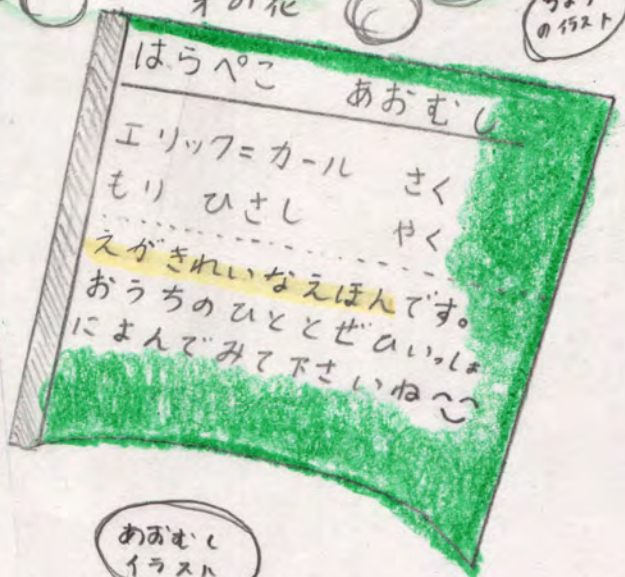 の花
の イラスト
はらぺこ あおむし
エリック=カール さく
もり ひさし やく
えがきれいなえほんです。
おうちのひととぜひいっしょ
によんでみて下さいね
あおむし
イラスト